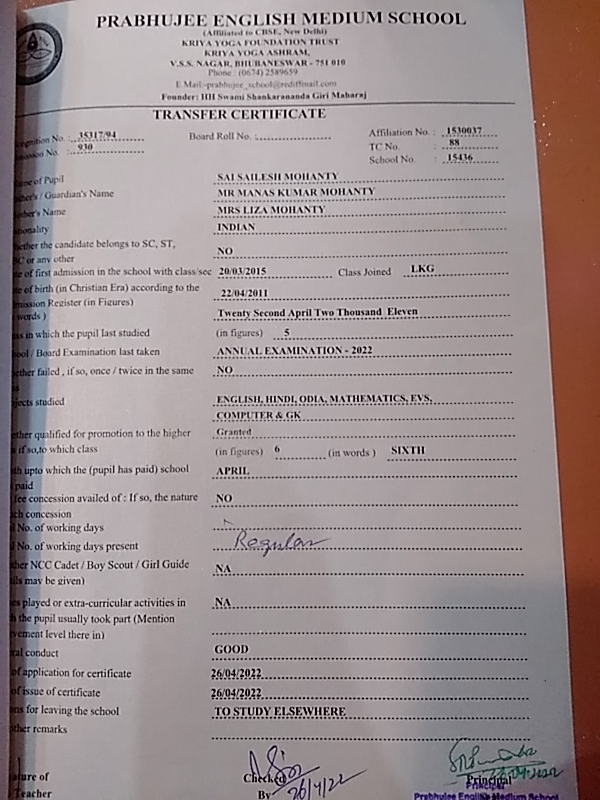 PRABHUJEE ENGLISH MEDIUM SCHOOL
(Affiliated to CBSE, New Delhi)
KRIYA YOGA FOUNDATION TRUST
KRIYA YOGA ASHRAM,
V.S.S. NAGAR, BHUBANESWAR - 751 010
Phone : (0674) 2589659
E.Mail:-prabhujee_school@rediffmail.com
Founder: HH Swami Shankarananda Giri Maharaj
TRANSFER CERTIFICATE
No. : 35317/94 Board Roll No. : Affiliation No. : 1530037
No. : 930 TC No. : 88
School No. : 15436
of Pupil SAI SAILESH MOHANTY
/ Guardian's Name MR MANAS KUMAR MOHANTY
Name MRS LIZA MOHANTY
INDIAN
the candidate belongs to SC, ST, NO
or any other
of first admission in the school with class/sec 20/03/2015 Class Joined LKG
of birth (in Christian Era) according to the
Register (in Figures) 22/04/2011
words ) Twenty Second April Two Thousand Eleven
in which the pupil last studied (in figures) 5
/ Board Examination last taken ANNUAL EXAMINATION - 2022
failed , if so, once / twice in the same NO
studied ENGLISH, HINDI, ODIA, MATHEMATICS, EVS,
COMPUTER & GK
qualified for promotion to the higher Granted
if so,to which class (in figures) 6 (in words ) SIXTH
upto which the (pupil has paid) school APRIL
paid
fee concession availed of : If so, the nature NO
concession
No. of working days
No. of working days present Regular
NCC Cadet / Boy Scout / Girl Guide NA
may be given)
played or extra-curricular activities in NA
the pupil usually took part (Mention
level there in)
conduct GOOD
of application for certificate 26/04/2022
of issue of certificate 26/04/2022
for leaving the school TO STUDY ELSEWHERE
remarks
of Checked Principal
Teacher By 26/4/22
Principal
Prabhujee English Medium School